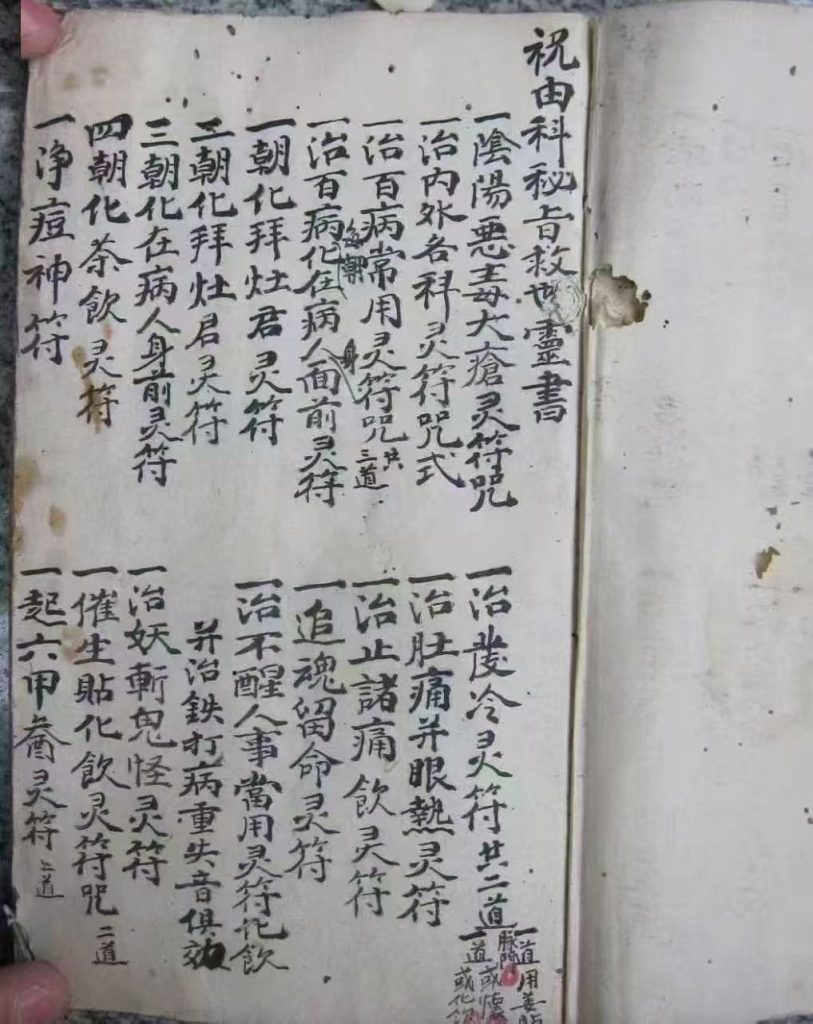 祝由科秘旨救世靈書
一陰陽惡毒大瘡灵符咒
一治内外各科灵符咒式
一治百病常用灵符咒共三道
一治百病化在病人面前灵符
每朝
身
一朝化拜灶君灵符
二朝化拜灶君灵符
三朝化在病人身前灵符
四朝化茶飲灵符
一净痘神符
一治發冷灵符共二道
一道用姜貼
脉門
一道或懷
或化
一治肚痛并眼熱灵符
一治止諸痛飲灵符
一追魂留命灵符
一治不醒人事當用灵符化飲
并治鉄打病重失音俱效
一治妖斬鬼怪灵符
一催生貼化飲灵符咒二道
一起六甲斋灵符